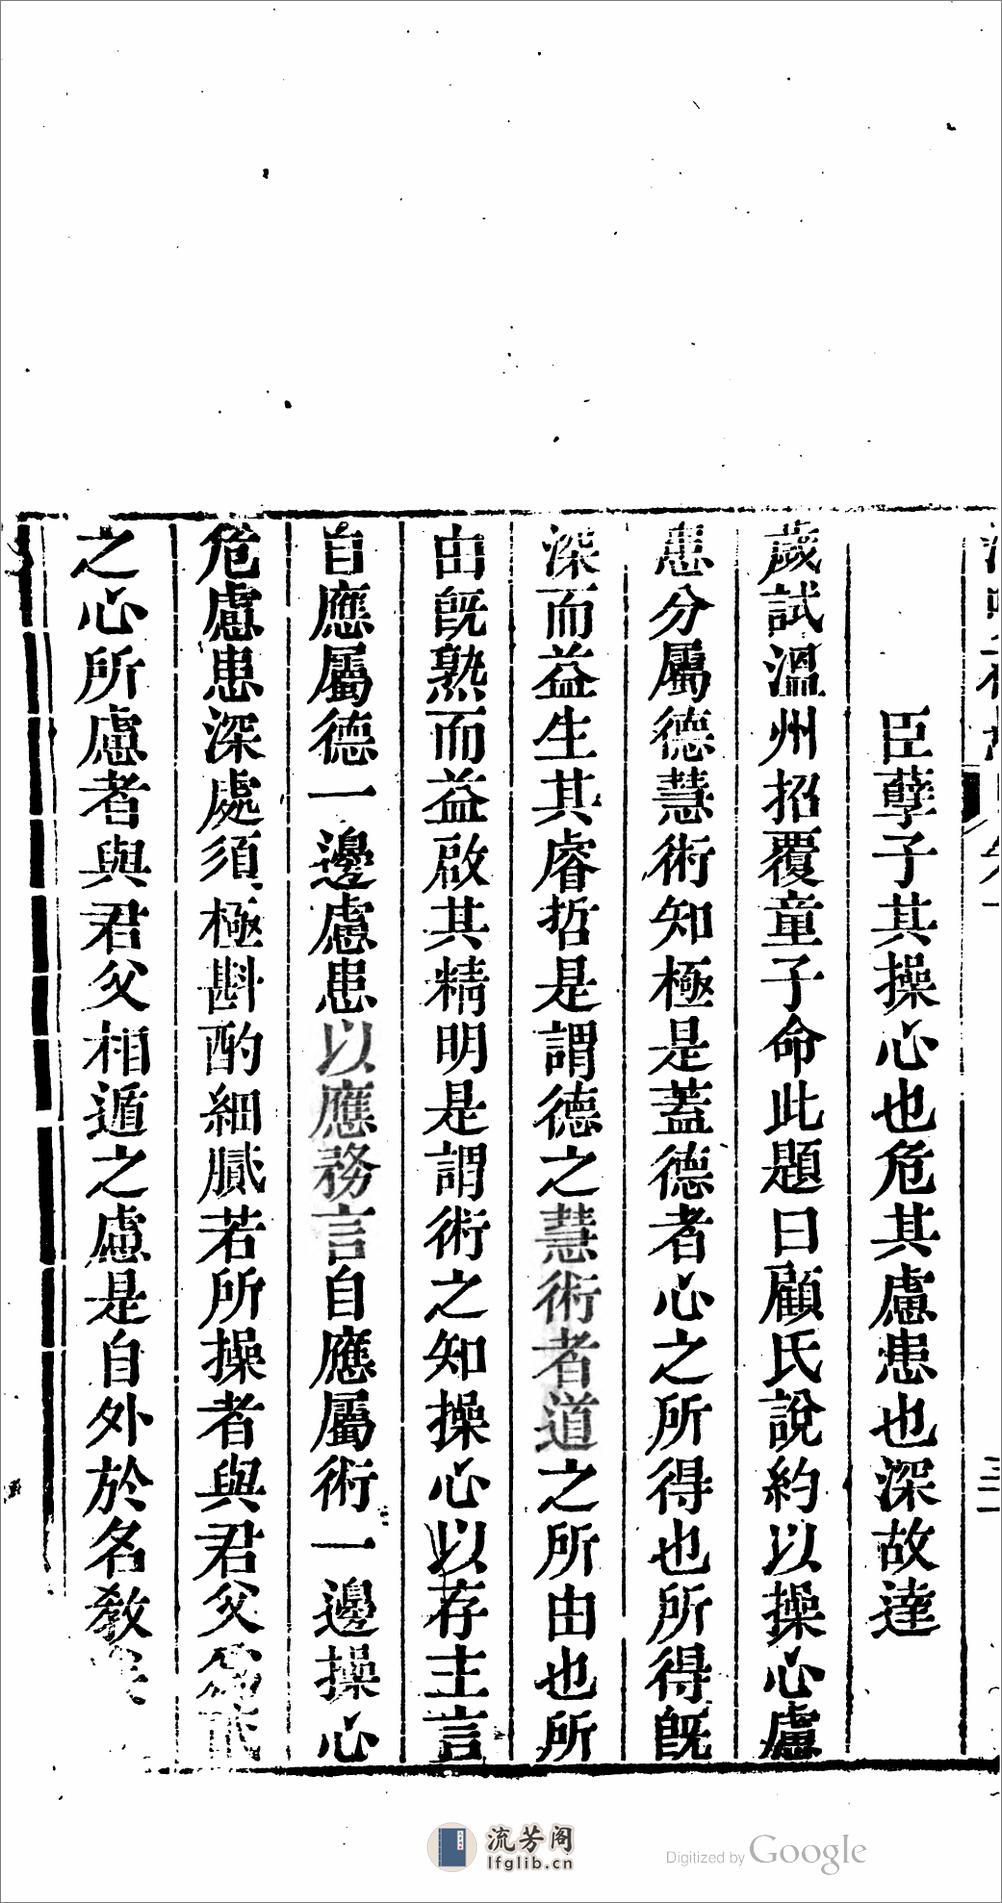 三
臣孽子其操心也危其慮患也深故達
歲試溫州招覆童子命此題曰顧氏說約以操心慮
患分屬德慧術知極是蓋德者心之所得也所得旣
深而益生其睿哲是謂德之慧術者道之所由也所
由旣熟而益啟其精明是謂術之知操心以存主言
自應屬德一邊慮患以應務言自應屬術一邊操心
危慮患深處須極斟酌細膩若所操者與君父
之心所慮者與君父相遁之慮是自外於名敎
流芳阁
lfglib.cn
Digitized by Google